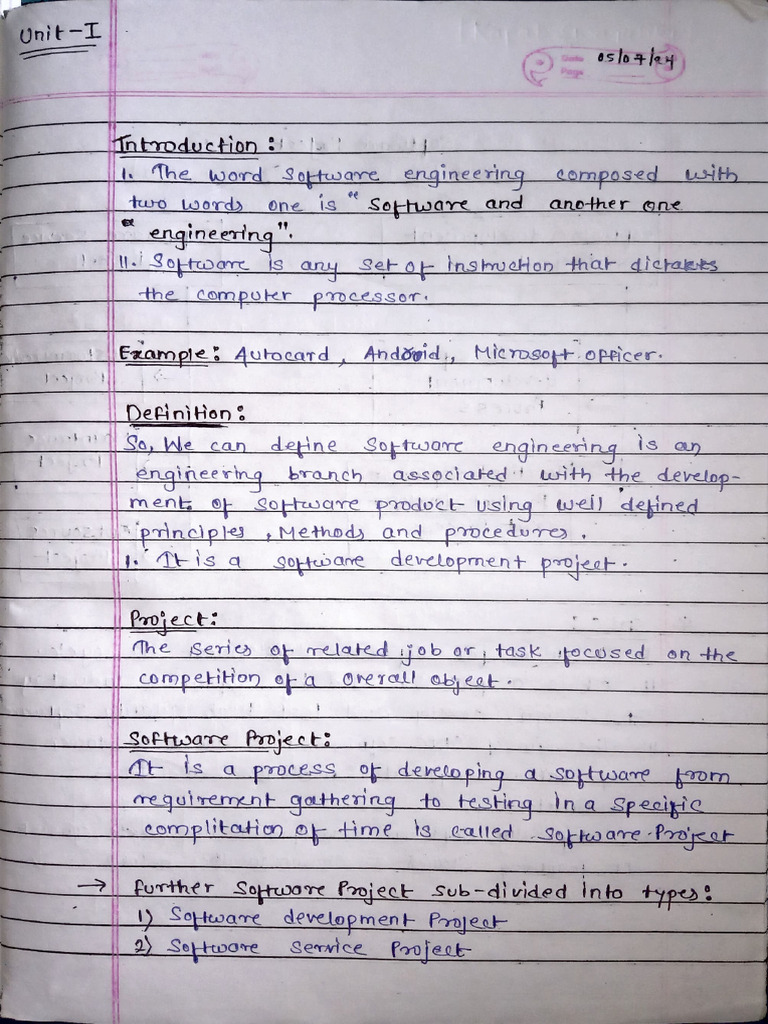 Unit-I
05/07/24
Introduction :
I. The word Software engineering composed with
two words one is "Software and another one
"engineering".
II. Software is any set of instruction that dictates
the computer processor.
Example: Autocard, Android, Microsoft officer.
Definition:
So, We can define Software engineering is an
engineering branch associated with the develop-
ment of software product using well defined
principles, Methods and procedures.
I. It is a software development project.
Project:
The series of related job or task focused on the
competition of a overall object.
Software Project:
It is a process of developing a software from
requirement gathering to testing in a specific
complitation of time is called software Project
→ further Software Project sub-divided into types:
1) Software development Project
2) Software service Project